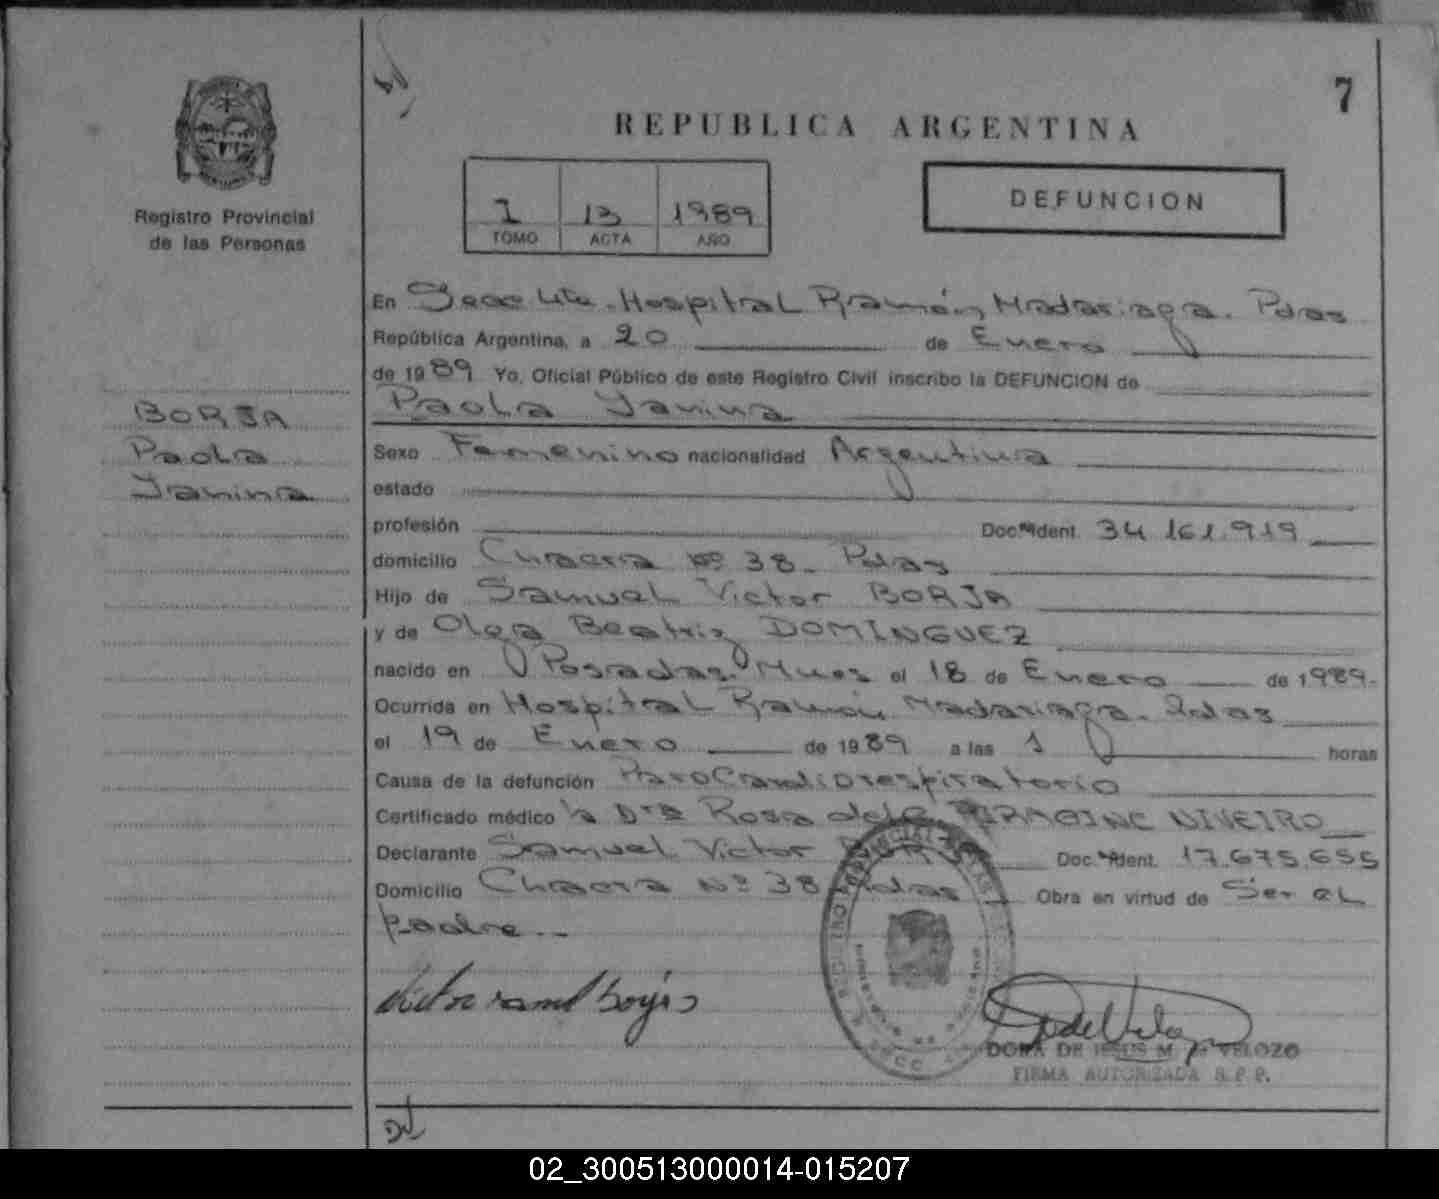 7
REPUBLICA ARGENTINA
Registro Provincial
de las Personas
I 13 1989
TOMO ACTA AÑO
DEFUNCION
BORJA
Paola
Yanina
En Secc 4ta. Hospital Ramón Madariaga. Pdas
República Argentina, a 20 de Enero
de 1989 Yo, Oficial Público de este Registro Civil inscribo la DEFUNCION de
Paola Yanina
Sexo Femenino nacionalidad Argentina
estado
profesión Doc. Ident. 34.161.919
domicilio Chacra Nº 38. Pdas
Hijo de Samuel Victor BORJA
y de Olga Beatriz DOMINGUEZ
nacido en Posadas. Mnes el 18 de Enero de 1989.
Ocurrida en Hospital Ramón Madariaga. Pdas
el 19 de Enero de 1989 a las 1 horas
Causa de la defunción Paro Cardiorespiratorio
Certificado médico Dra Rosa del C NIVEIRO
Declarante Samuel Victor Doc. Ident. 17.675.655
Domicilio Chacra Nº 38 Pdas Obra en virtud de Ser el
padre..
DORA DE JESUS M. VELOZO
FIRMA AUTORIZADA R.P.P.
02_300513000014-015207